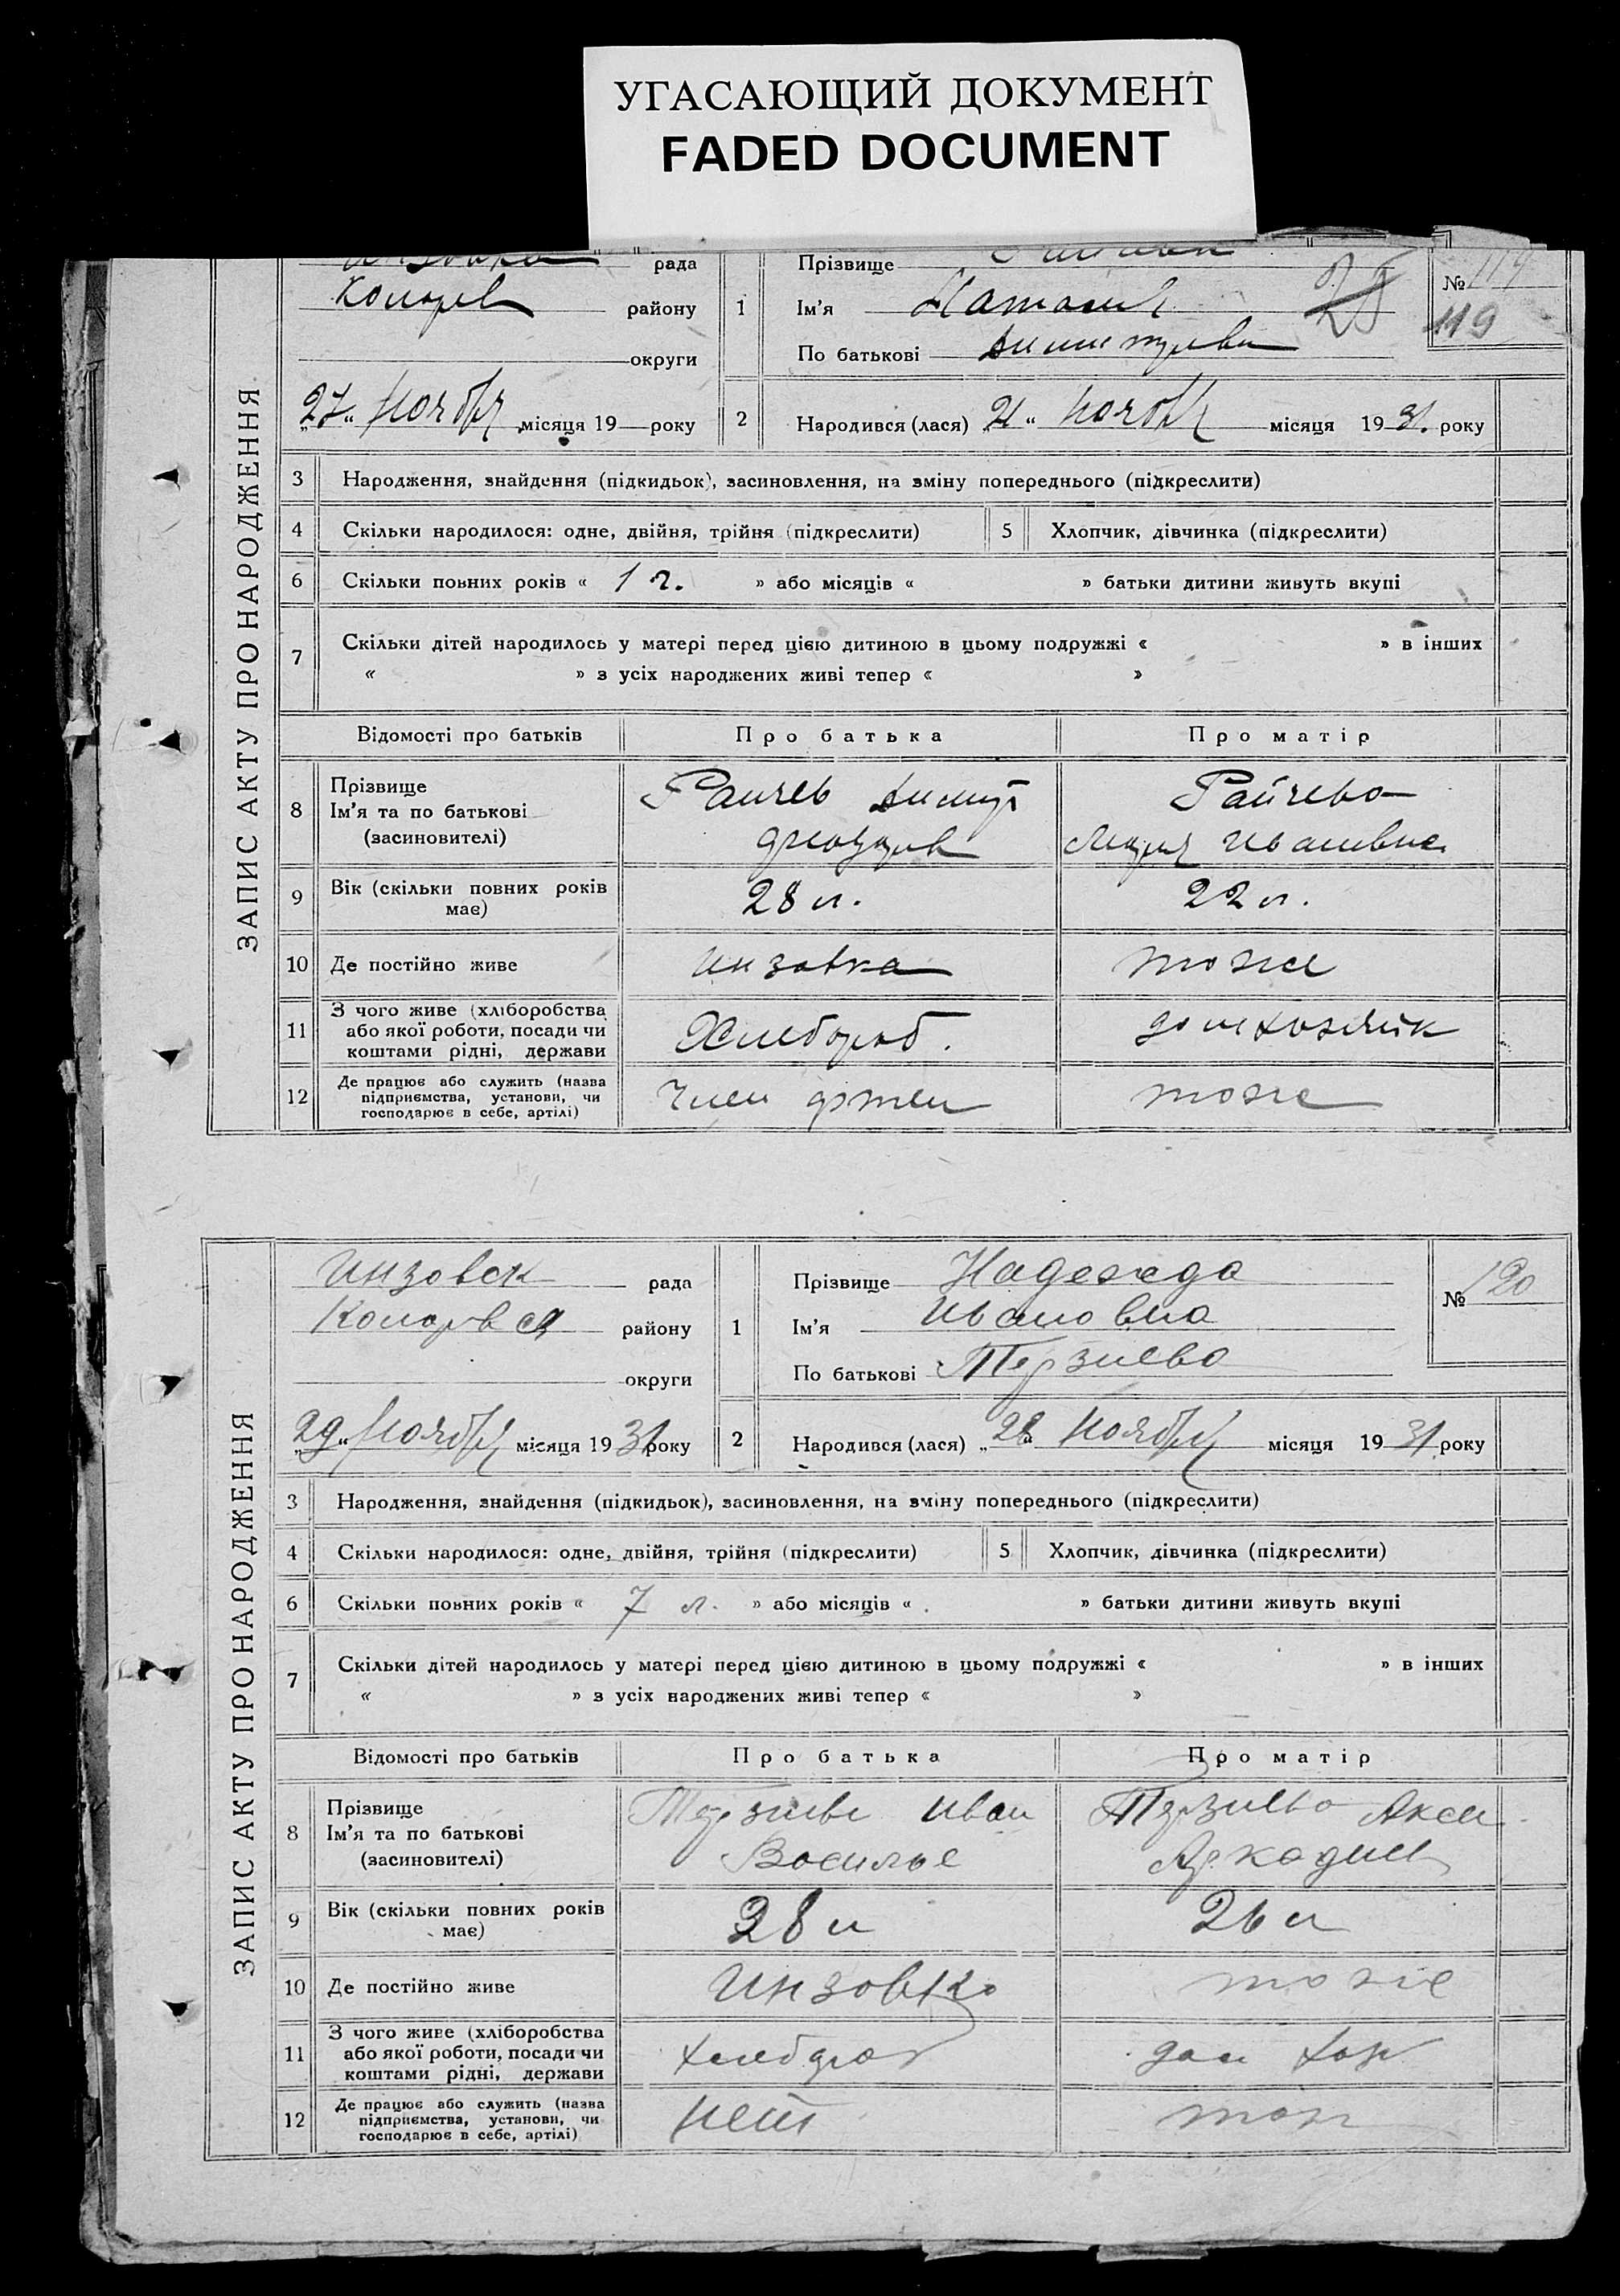 УГАСАЮЩИЙ ДОКУМЕНТ
FADED DOCUMENT
ЗАПИС АКТУ ПРО НАРОДЖЕННЯ
рада
Коларов району
округи
„27“ Ноября місяця 19 року
1
Прізвище
Ім'я Наталия
По батькові Димитриевн
№ 119
119
2 Народився (лася) „21“ Ноября місяця 1931. року
3 Народження, знайдення (підкидьок), засиновлення, на зміну попереднього (підкреслити)
4 Скільки народилося: одне, двійня, трійня (підкреслити) 5 Хлопчик, дівчинка (підкреслити)
6 Скільки повних років « 1 г. » або місяців « » батьки дитини живуть вкупі
7 Скільки дітей народилось у матері перед цією дитиною в цьому подружжі « » в інших
« » з усіх народжених живі тепер « »
Відомості про батьків Про батька Про матір
8 Прізвище
Ім'я та по батькові
(засиновителі)
Райчев Димитр
Райчева
Ивановна
9 Вік (скільки повних років
має)
28 л. 22 л.
10 Де постійно живе Инзовка тоже
11 З чого живе (хліборобства
або якої роботи, посади чи
коштами рідні, держави
Хлебороб. домхозяйк
12 Де працює або служить (назва
підприємства, установи, чи
господарює в себе, артілі)
Член артели тоже
ЗАПИС АКТУ ПРО НАРОДЖЕННЯ
Инзовск рада
Коларовск району
округи
„29“ Ноября місяця 1931 року
1
Прізвище Надежда
Ім'я Ивановна
По батькові Терзиева
№ 120
2 Народився (лася) „28“ Ноября місяця 1931 року
3 Народження, знайдення (підкидьок), засиновлення, на зміну попереднього (підкреслити)
4 Скільки народилося: одне, двійня, трійня (підкреслити) 5 Хлопчик, дівчинка (підкреслити)
6 Скільки повних років « 7 л. » або місяців « » батьки дитини живуть вкупі
7 Скільки дітей народилось у матері перед цією дитиною в цьому подружжі « » в інших
« » з усіх народжених живі тепер « »
Відомості про батьків Про батька Про матір
8 Прізвище
Ім'я та по батькові
(засиновителі)
Терзиев Иван
Василье
Терзиева Аксен
Аркадиев
9 Вік (скільки повних років
має)
28 л 26 л
10 Де постійно живе Инзовка тоже
11 З чого живе (хліборобства
або якої роботи, посади чи
коштами рідні, держави
хлебороб дом хоз
12 Де працює або служить (назва
підприємства, установи, чи
господарює в себе, артілі)
нет тож